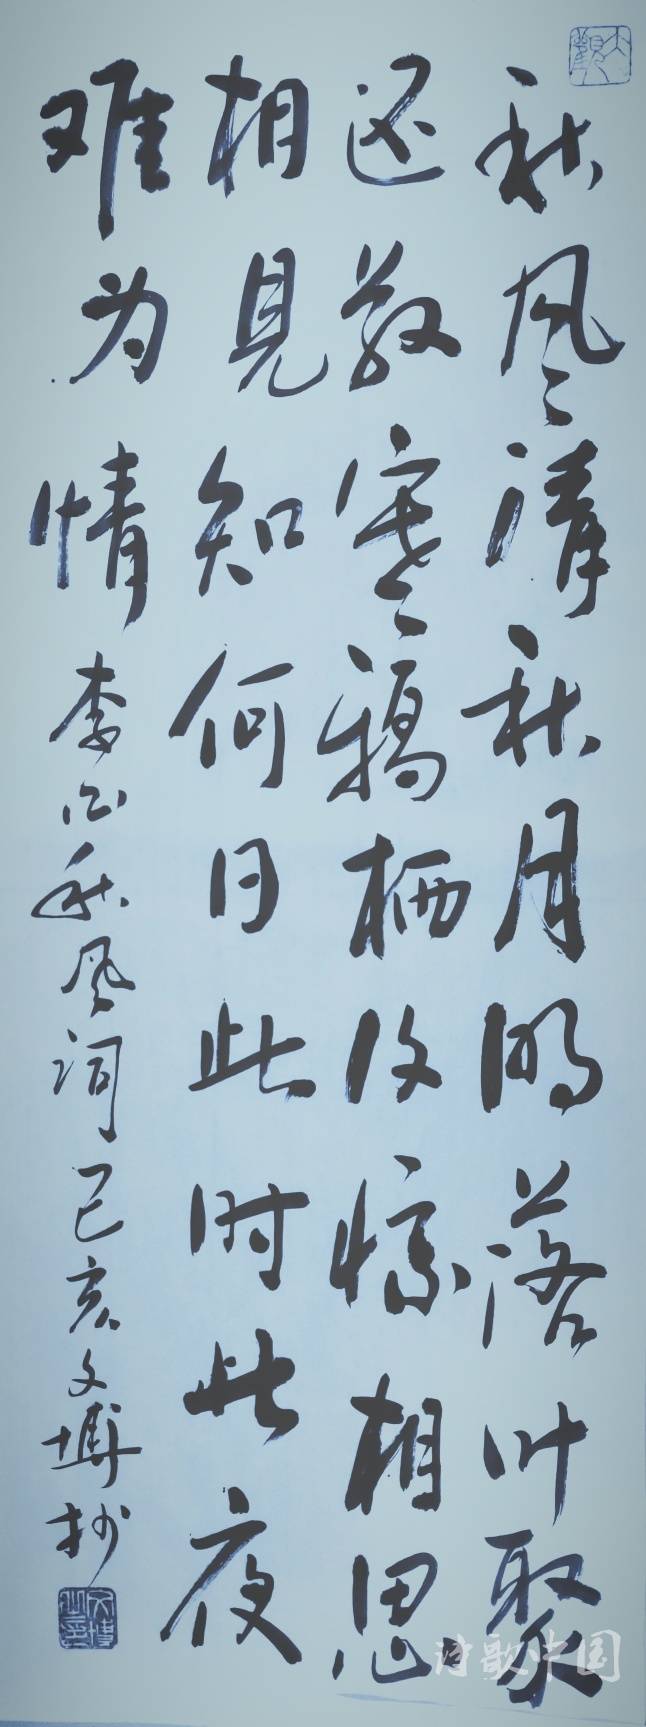 大观
秋风清秋月明落叶聚
还散寒鸦栖复惊相思
相见知何日此时此夜
难为情 李白秋风词 己亥文博抄
诗歌中国